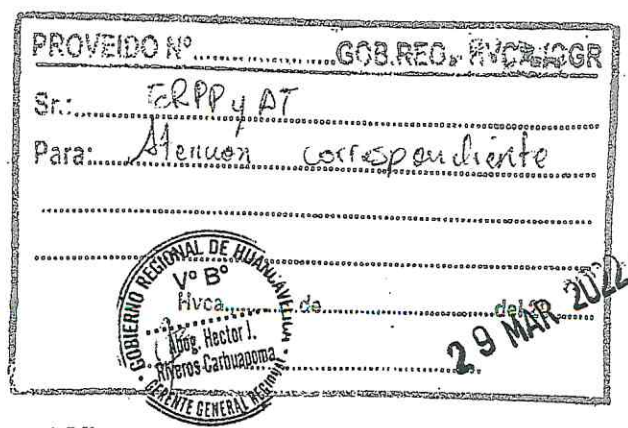 PROVEIDO Nº ........................ GOB.REG. HVCA./GGR
Sr.: GRPP y AT
Para: Atención correspondiente
GOBIERNO REGIONAL DE HUANCAVELICA
Vº Bº
Hvca. ............ de ............ del 20
29 MAR 2022
Abog. Hector J.
Riveros Carhuapoma
GERENTE GENERAL REGIONAL